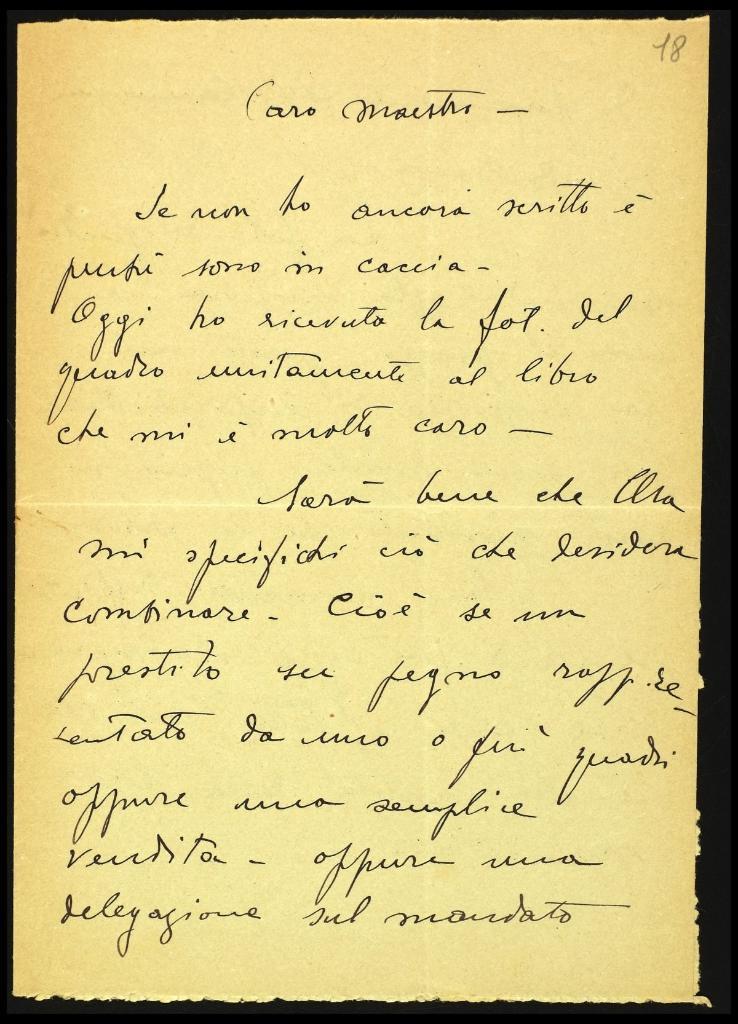 18
Caro Maestro —
Se non ho ancora scritto è
perché sono in caccia -
Oggi ho ricevuta la fot. del
quadro unitamente al libro
che mi è molto caro —
Sarà bene che Ella
mi specifichi ciò che desidera
combinare - Cioè se un
prestito su pegno rappre-
sentato da uno o più quadri
oppure una semplice
vendita - oppure una
delegazione sul mandato